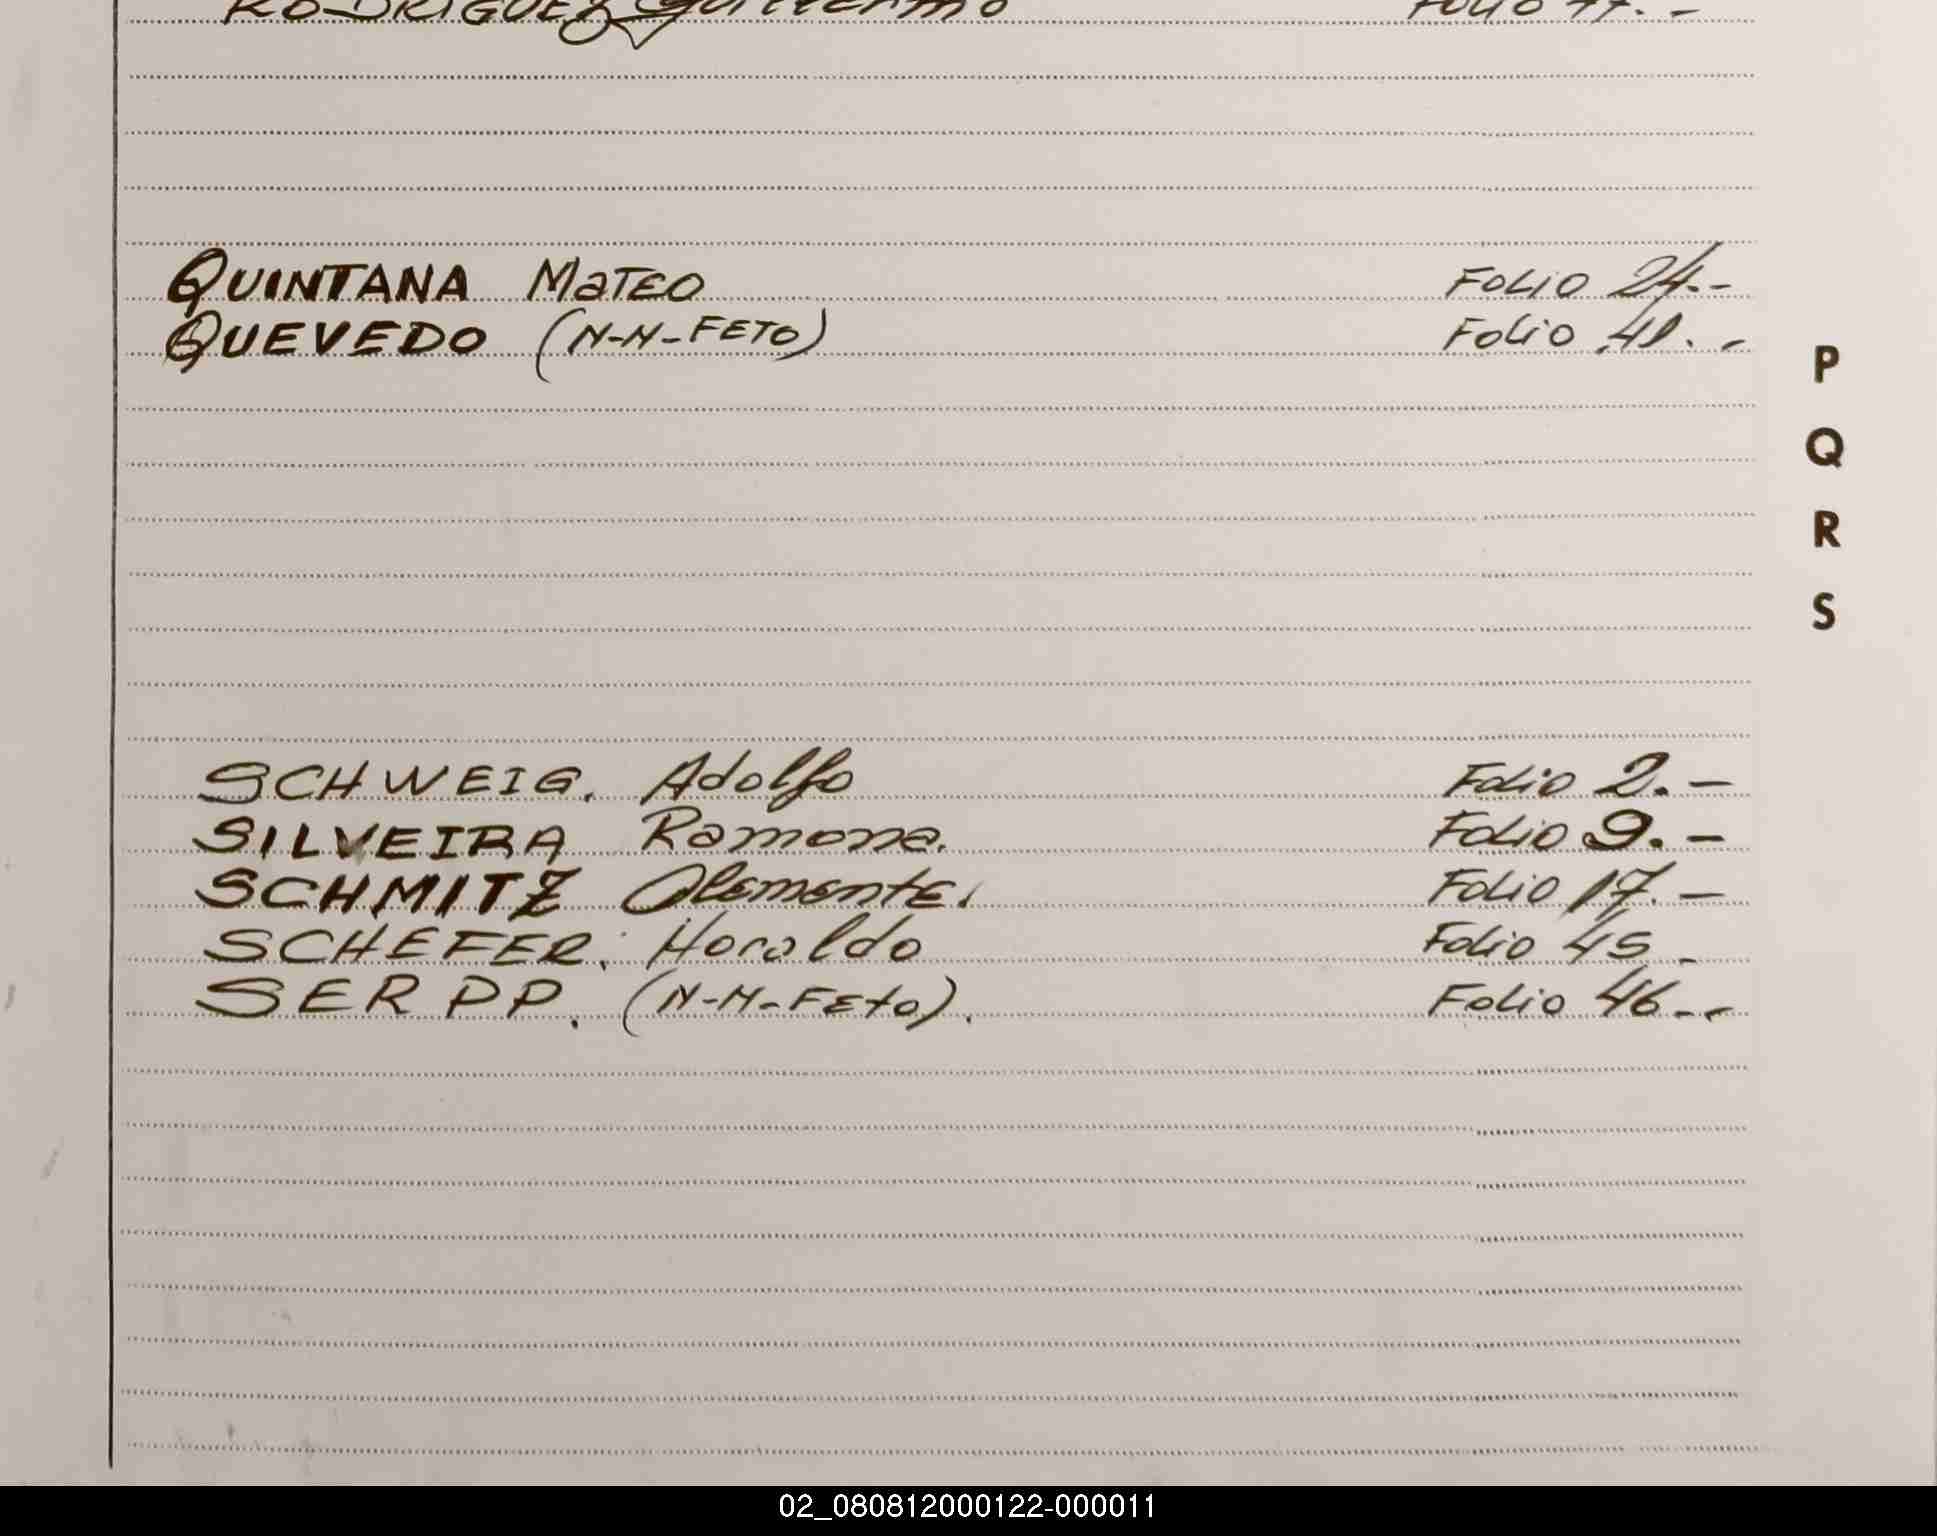 RODRIGUEZ Guillermo Folio 77.-
QUINTANA Mateo Folio 24.-
QUEVEDO (N-N-FETO) Folio 41.-
P
Q
R
S
SCHWEIG. Adolfo Folio 2.-
SILVEIRA Ramona. Folio 9.-
SCHMITZ Clemente. Folio 17.-
SCHEFER. Horaldo Folio 45-
SERPP. (N-N-Feto). Folio 46.-
02_080812000122-000011